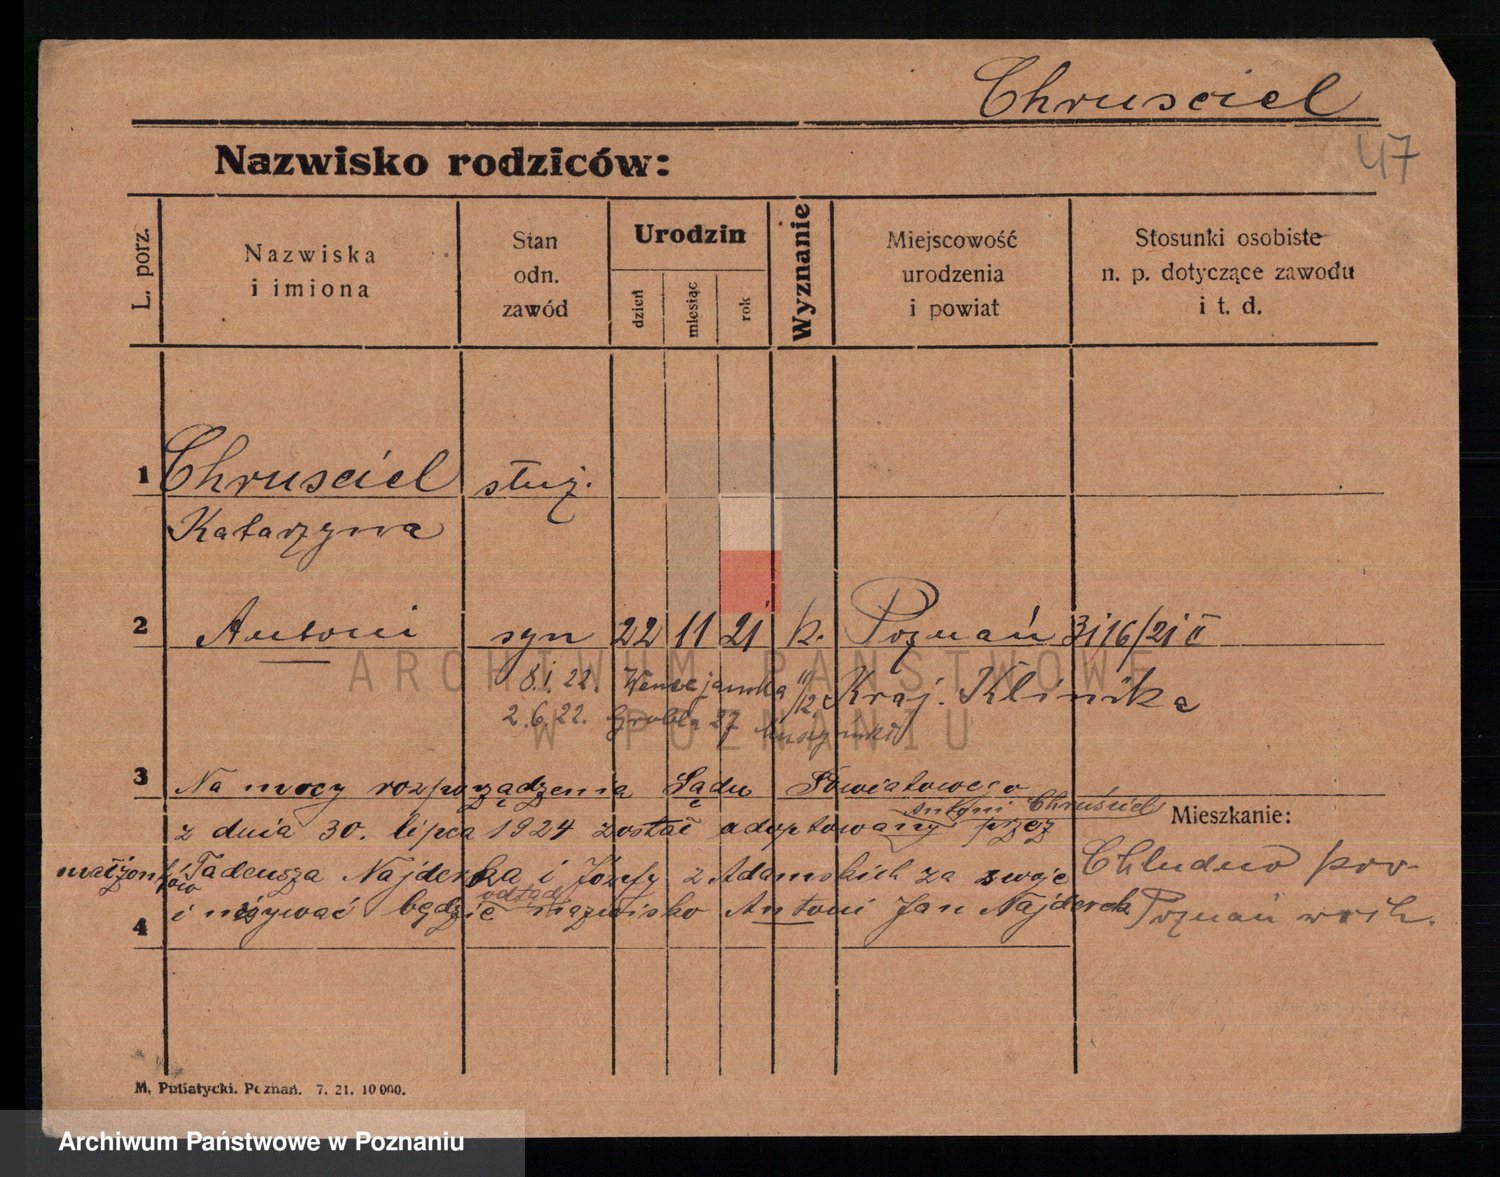 Chrusciel
47
Nazwisko rodziców:
L. porz.
Nazwiska
i imiona
Stan
odn.
zawód
Urodzin
dzień
miesiąc
rok
Wyznanie
Miejscowość
urodzenia
i powiat
Stosunki osobiste
n. p. dotyczące zawodu
i t. d.
1 Chrusciel służ.
Katarzyna
2 Antoni syn 22 11 21 k. Poznań 3116/21 II
8.1.22. Wenecjanska 11/12 Kraj. Klinika
2.6.22. Grobla 27
ARCHIWUM PAŃSTWOWE
W POZNANIU
3 Na mocy rozporządzenia Sądu Powiatowego
Antoni Chruściel
z dnia 30. lipca 1924 został adoptowany przez
małżonków Tadeusza Najderka i Józefy z Adamskich za swoje
odtąd
4 i nazywać będzie nazwisko Antoni Jan Najderek
Mieszkanie:
Chludowo pow.
Poznań wsch.
M. Putiatycki. Poznań. 7. 21. 10 000.
Archiwum Państwowe w Poznaniu